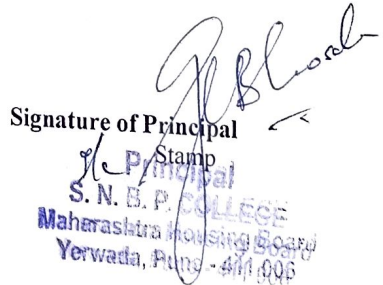 Signature of Principal
Stamp
I/c Principal
S. N. B. P. COLLEGE
Maharashtra Housing Board
Yerwada, Pune - 411 006